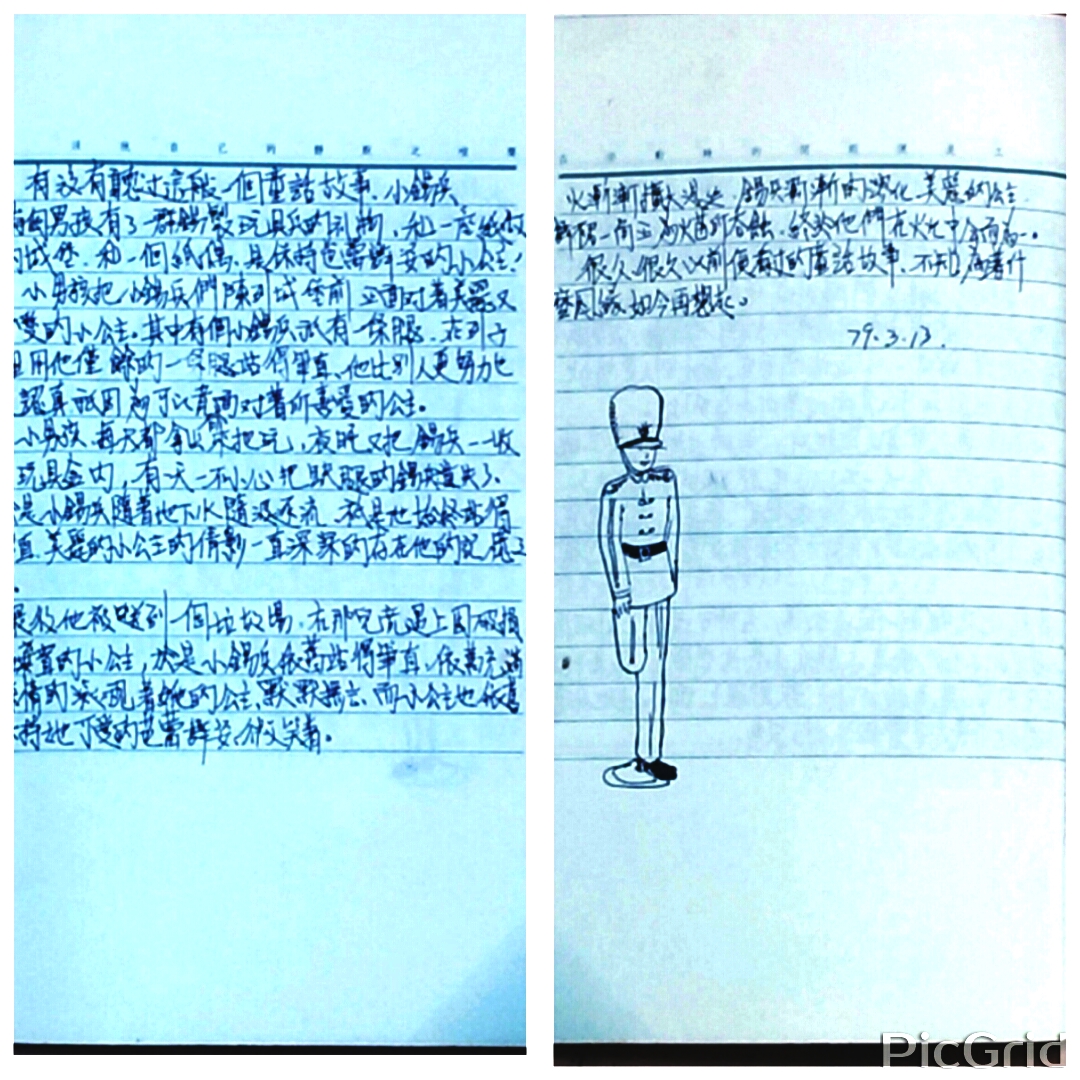 有沒有聽過這般一個童話故事. 小錫兵
個男孩有了一群錫製玩具兵的禮物, 和一座紙做
的城堡. 和一個紙偶. 是保持芭蕾舞姿的小公主.
小男孩把小錫兵們陳列城堡前 正面對著美麗又
愛的小公主. 其中有個小錫兵祇有一條腿. 在列子
且用他僅餘的一條腿站得筆直. 他比別人更努力也
認真祇因為可以看面對著所喜愛的公主。
小男孩. 每天都拿出來把玩, 夜晚又把錫兵一收
玩具盒內, 有一天一不小心把缺腿的錫兵遺失了.
是小錫兵隨著地下水隨波逐流. 祇是他始終站得
直. 美麗的小公主的倩影一直深深的存在他的
最後他被 到一個垃圾場. 在那兒竟遇上因破損
棄置的小公主, 於是小錫兵依舊站得筆直. 依舊充滿
情的 視著她的公主. 默默無言. 而小公主也依舊
持她可愛的芭蕾舞姿. 微笑著.
火漸漸擴大漫延. 錫兵漸漸的溶化 美麗的公主.
一同 為火苗所吞蝕. 終於他們在火化中合而為一.
很久很久以前便看過的童話故事. 不知為著什
麼因緣如今再想起。
79.3.13.
PicGrid